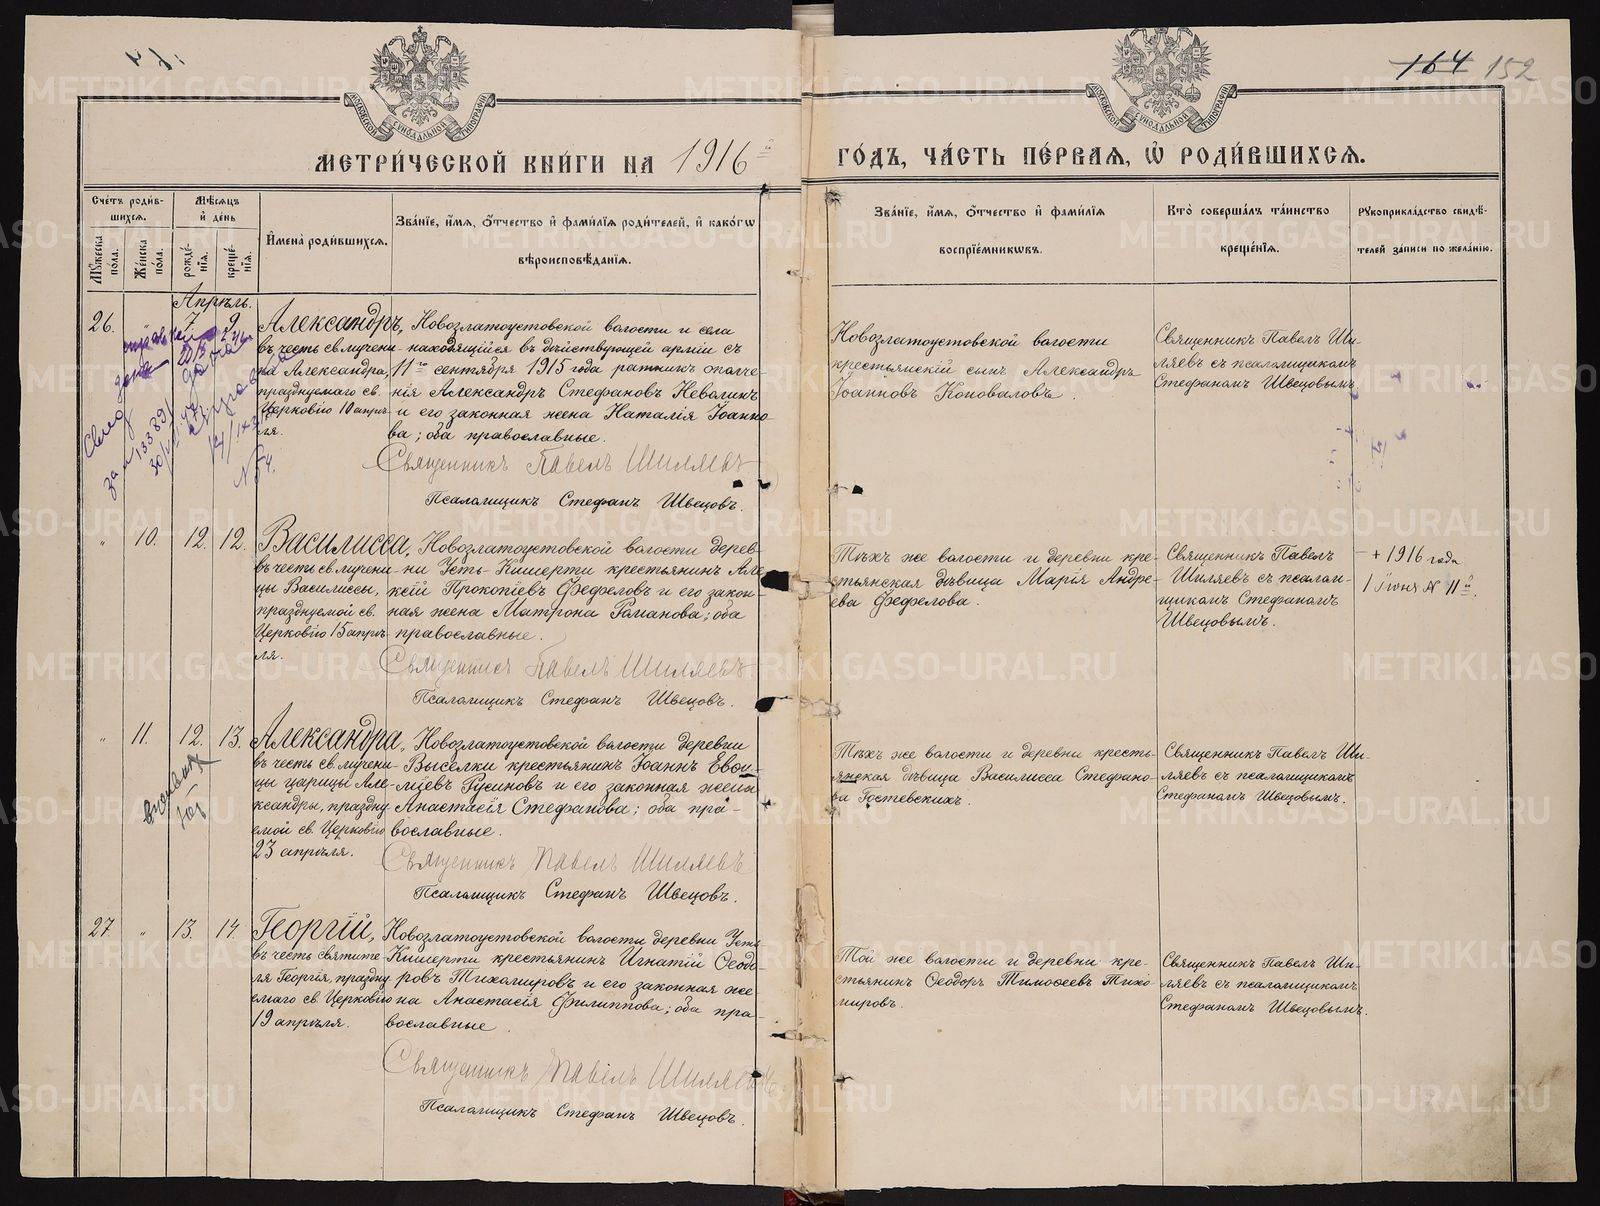 164 152
МОСКОВСКОЙ СѴНОДАЛЬНОЙ ТИПОГРАФІИ
МОСКОВСКОЙ СѴНОДАЛЬНОЙ ТИПОГРАФІИ
МЕТРИ́ЧЕСКОЙ КНИ́ГИ НА 1916й
ГО́ДЪ, ЧА́СТЬ ПЕ́РВАЯ, Ѡ РОДИ́ВШИХСЯ.
Сче́тъ роди́в-
шихся.
Мꙋ́жеска по́ла.
Же́нска по́ла.
Мѣ́сяцъ
и де́нь
рожде́-
нія.
креще́-
нія.
Имена̀ роди́вшихся.
Зва́ніе, и́мя, о́тчество и фами́лія роди́телей, и како́гѡ
вѣроисповѣ́данія.
Зва́ніе, и́мя, о́тчество и фами́лія
воспріе́мникѡвъ.
Кто̀ соверша́лъ та́инство
креще́нія.
Рꙋкоприкла́дство свидѣ́-
телей за́писи по жела́нію.
Апрѣль.
26. " 7 9
Александръ,
въ честь св. мучени-
ка Александра,
празднуемаго св.
Церковію 10 апрѣ-
ля.
Новозлатоустовской волости и села
находящійся въ дѣйствующей арміи съ
11го сентября 1915 года ратникъ ополче-
нія Александръ Стефановъ Неволинъ
и его законная жена Наталія Іоанно-
ва; оба православные.
Священникъ Павелъ Шиляевъ
Псаломщикъ Стефанъ Швецовъ.
Новозлатоустовской волости
крестьянскій сынъ Александръ
Іоанновъ Коноваловъ.
Священникъ Павелъ Ши-
ляевъ съ псаломщикомъ
Стефаномъ Швецовымъ.
" 10. 12. 12.
Василисса,
въ честь св. мучени-
цы Василиссы,
празднуемой св.
Церковію 15 апрѣ-
ля.
Новозлатоустовской волости дерев-
ни Усть-Кишерти крестьянинъ Але-
ксій Прокопіевъ Фефеловъ и его закон-
ная жена Матрона Романова; оба
православные.
Священникъ Павелъ Шиляевъ
Псаломщикъ Стефанъ Швецовъ.
Тѣхъ же волости и деревни кре-
стьянская дѣвица Марія Андре-
ева Фефелова.
Священникъ Павелъ
Шиляевъ съ псалом-
щикомъ Стефаномъ
Швецовымъ.
+ 1916 года
1 Іюня № 11й.
" 11. 12. 13.
Александра,
въ честь св. мучени-
цы царицы Але-
ксандры, праздну-
емой св. Церковію
23 апрѣля.
Новозлатоустовской волости деревни
Выселки крестьянинъ Іоаннъ Евои-
ліевъ Русиновъ и его законная жена
Анастасія Стефанова; оба пра-
вославные.
Священникъ Павелъ Шиляевъ
Псаломщикъ Стефанъ Швецовъ.
Тѣхъ же волости и деревни кресть-
янская дѣвица Василисса Стефано-
ва Гостевскихъ.
Священникъ Павелъ Ши-
ляевъ съ псаломщикомъ
Стефаномъ Швецовымъ.
27 " 13. 14.
Георгій,
въ честь святите-
ля Георгія, праздну-
емаго св. Церковію
19 апрѣля.
Новозлатоустовской волости деревни Усть-
Кишерти крестьянинъ Игнатій Ѳеодо-
ровъ Тихомировъ и его законная же-
на Анастасія Филиппова; оба пра-
вославные.
Священникъ Павелъ Шиляевъ
Псаломщикъ Стефанъ Швецовъ.
Той же волости и деревни кре-
стьянинъ Ѳеодоръ Тимоѳеевъ Тихо-
мировъ.
Священникъ Павелъ Ши-
ляевъ съ псаломщикомъ
Стефаномъ Швецовымъ.
METRIKI.GASO-URAL.RU